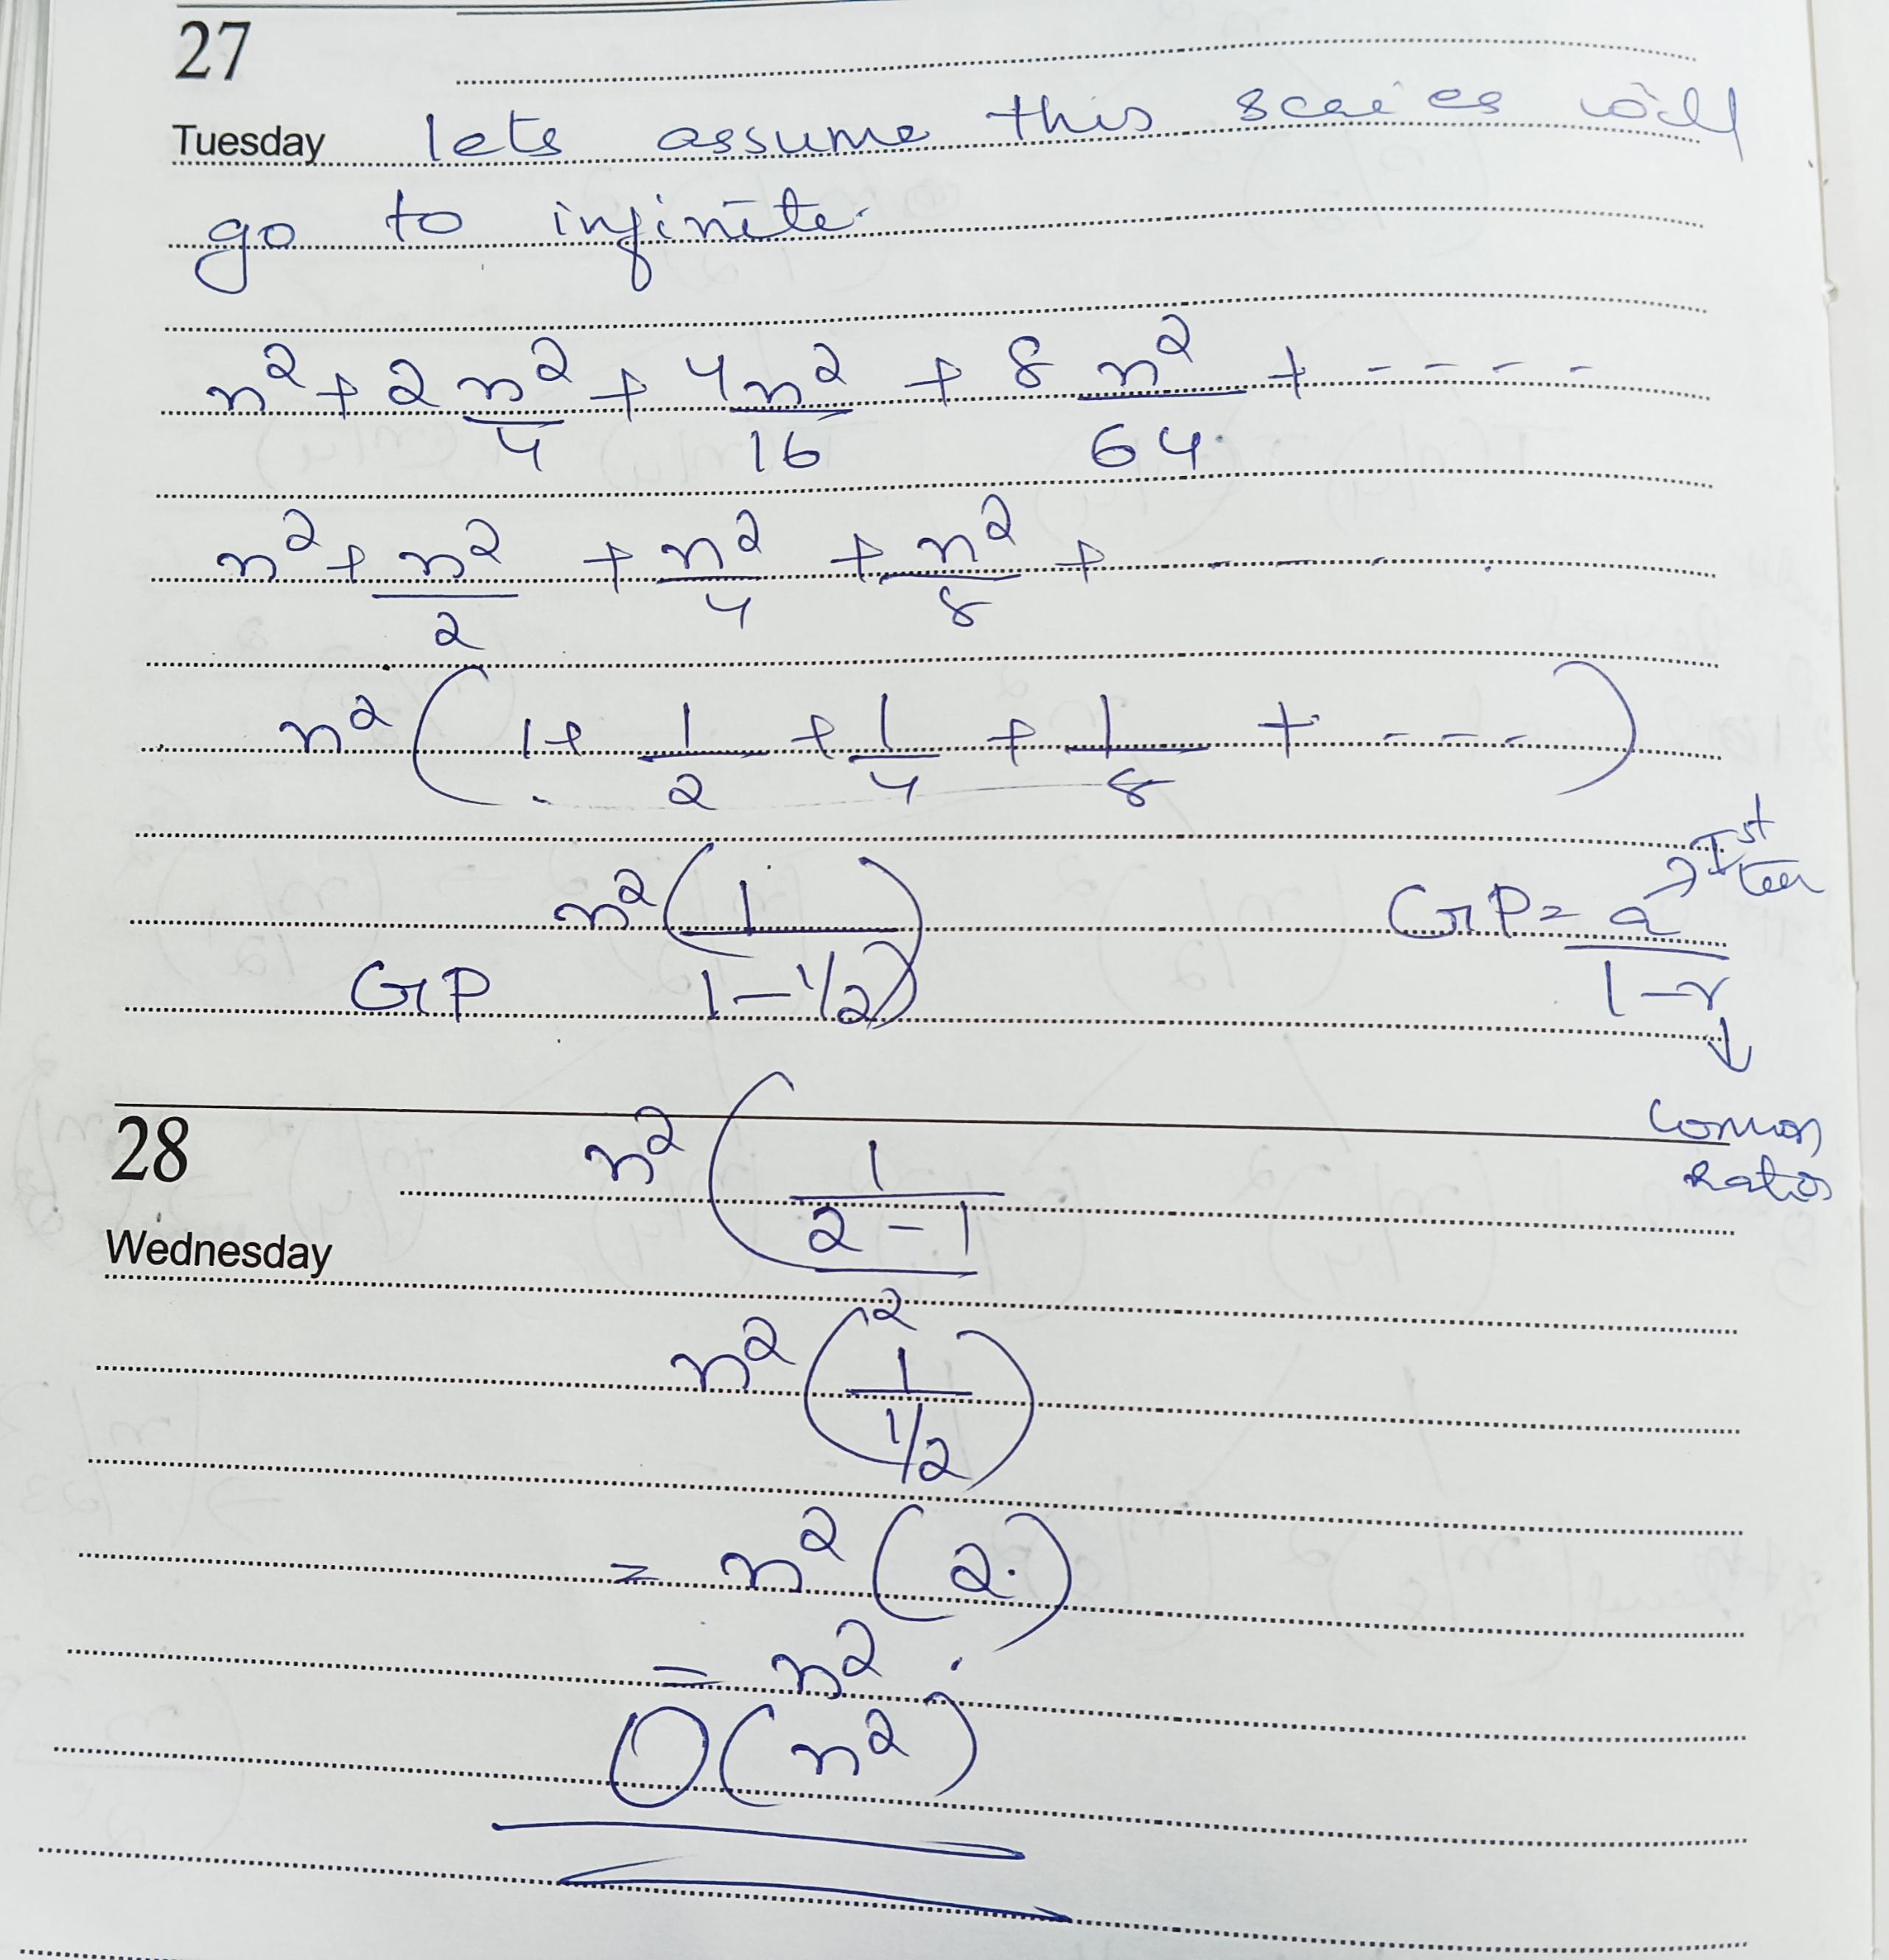 27
Tuesday lets assume this scaies will
go to infinite.
n² + 2 n²/4 + 4n²/16 + 8 n²/64 + - - - -
n² + n²/2 + n²/4 + n²/8 + - - - .
n² ( 1 + 1/2 + 1/4 + 1/8 + - - - - )
n² ( 1 / 1 - 1/2 )
GP
GP = a / 1 - r
Ist
28
n² ( 1 / 2 - 1 / 2
Ratio
Wednesday
n² ( 1 / 1/2 )
= n² ( 2 )
= n²
O(n²)